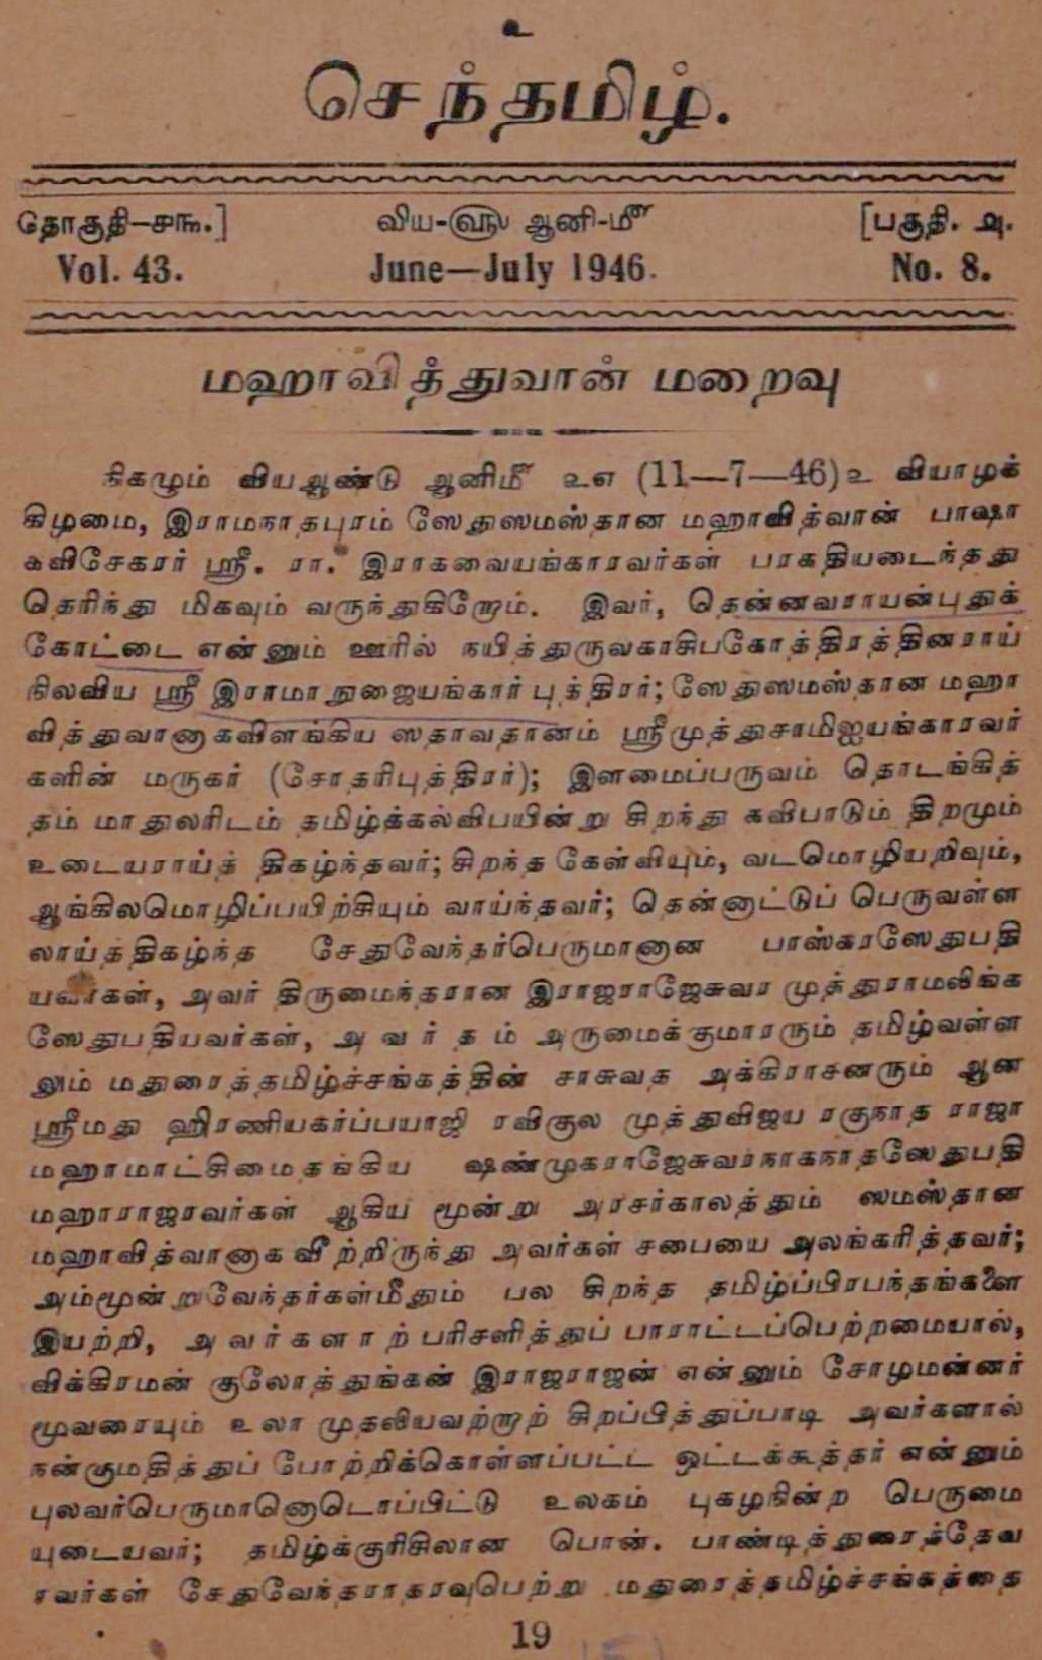 உ
செந்தமிழ்.
தொகுதி—௪௩.] விய-௵ ஆனி-௴ [பகுதி. ௮.
Vol. 43. June—July 1946. No. 8.
மஹாவித்துவான் மறைவு
நிகழும் வியஆண்டு ஆனி௴ ௨௭ (11—7—46)உ வியாழக்
கிழமை, இராமநாதபுரம் ஸேதுஸமஸ்தான மஹாவித்வான் பாஷா
கவிசேகரர் ஸ்ரீ. ரா. இராகவையங்காரவர்கள் பரகதியடைந்தது
தெரிந்து மிகவும் வருந்துகிறோம். இவர், தென்னவராயன்புதுக்
கோட்டை என்னும் ஊரில் நயித்துருவகாசிபகோத்திரத்தினராய்
நிலவிய ஸ்ரீ இராமாநுஜையங்கார் புத்திரர்; ஸேதுஸமஸ்தான மஹா
வித்துவானாகவிளங்கிய ஸதாவதானம் ஸ்ரீமுத்துசாமிஐயங்காரவர்
களின் மருகர் (சோதரிபுத்திரர்); இளமைப்பருவம் தொடங்கித்
தம் மாதுலரிடம் தமிழ்க்கல்விபயின்று சிறந்து கவிபாடும் திறமும்
உடையராய்த் திகழ்ந்தவர்; சிறந்த கேள்வியும், வடமொழியறிவும்,
ஆங்கிலமொழிப்பயிற்சியும் வாய்ந்தவர்; தென்னாட்டுப் பெருவள்ள
லாய்த்திகழ்ந்த சேதுவேந்தர்பெருமானான பாஸ்கரஸேதுபதி
யவர்கள், அவர் திருமைந்தரான இராஜராஜேசுவர முத்துராமலிங்க
ஸேதுபதியவர்கள், அவர்தம் அருமைக்குமாரரும் தமிழ்வள்ள
லும் மதுரைத்தமிழ்ச்சங்கத்தின் சாசுவத அக்கிராசனரும் ஆன
ஸ்ரீமது ஹிரணியகர்ப்பயாஜி ரவிகுல முத்துவிஜய ரகுநாத ராஜா
மஹாமாட்சிமைதங்கிய ஷண்முகராஜேசுவரநாகநாதஸேதுபதி
மஹாராஜரவர்கள் ஆகிய மூன்று அரசர்காலத்தும் ஸமஸ்தான
மஹாவித்வானாக வீற்றிருந்து அவர்கள் சபையை அலங்கரித்தவர்;
அம்மூன்றுவேந்தர்கள்மீதும் பல சிறந்த தமிழ்ப்பிரபந்தங்களை
இயற்றி, அவர்களாற் பரிசளித்துப் பாராட்டப்பெற்றமையால்,
விக்கிரமன் குலோத்துங்கன் இராஜராஜன் என்னும் சோழமன்னர்
மூவரையும் உலா முதலியவற்றாற் சிறப்பித்துப்பாடி அவர்களால்
நன்குமதித்துப் போற்றிக்கொள்ளப்பட்ட ஒட்டக்கூத்தர் என்னும்
புலவர்பெருமானொடொப்பிட்டு உலகம் புகழநின்ற பெருமை
யுடையவர்; தமிழ்க்குரிசிலான பொன். பாண்டித்துரைத்தேவ
ரவர்கள் சேதுவேந்தராதரவுபெற்று மதுரைத்தமிழ்ச்சங்கத்தை
19